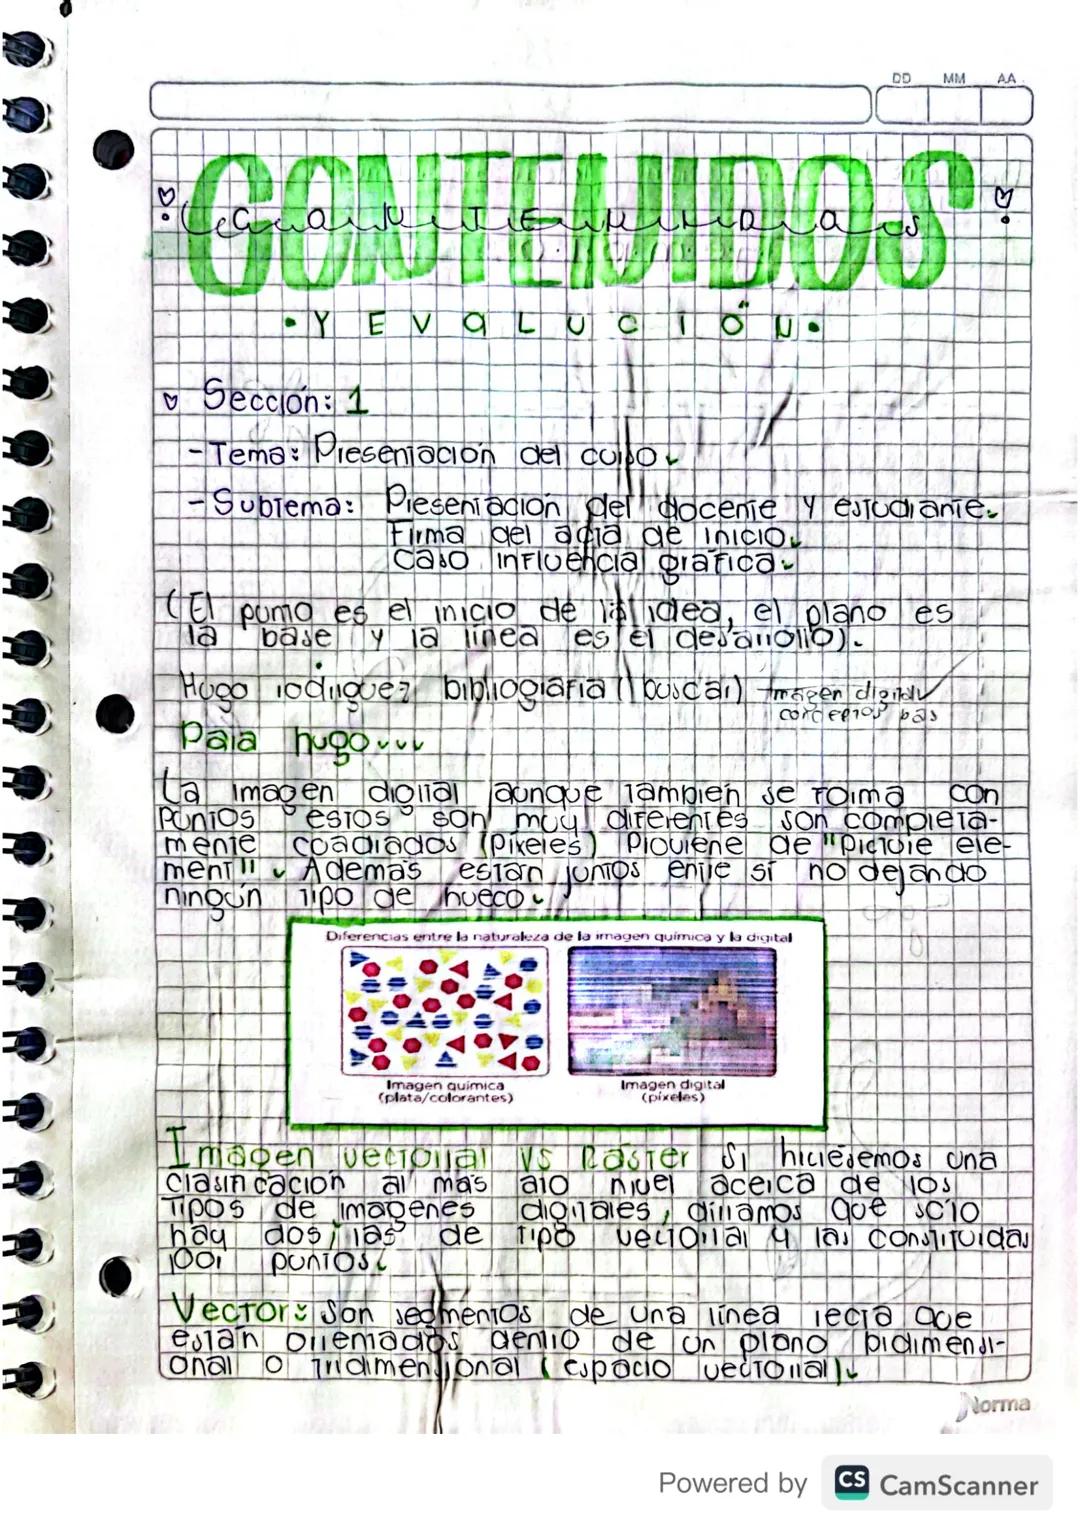 DD MM AA
CONTENIDOS
Contenidos
• Y EVOLUCIÓN •
Sección: 1
- Tema: Presentación del curso.
- Subtema: Presentación del docente y estudiante.
Firma del acta de inicio.
Caso influencia grafica.
(El punto es el inicio de la idea, el plano es
la base y la linea es el desarrollo).
Hugo rodriguez bibliografia (buscar) Imagen digital
conceptos bas
Para hugo...
La imagen digital aunque tambien se forma con
puntos estos son muy diferentes son completa-
mente cuadrados (pixeles) Proviene de "picture ele-
ment". Además están juntos entre sí no dejando
ningún tipo de hueco.
Diferencias entre la naturaleza de la imagen química y la digital
Imagen química Imagen digital
(plata/colorantes) (píxeles)
Imagen vectorial vs Raster Si hiciesemos una
clasificación al más alto nivel acerca de los
tipos de imagenes digitales, diriamos que solo
hay dos, las de tipo vectorial y las constituidas
por puntos.
Vector: Son segmentos de una línea recta que
están orientados dentro de un plano bidimensi-
onal o tridimensional (espacio vectorial).
Norma
Powered by CS CamScanner